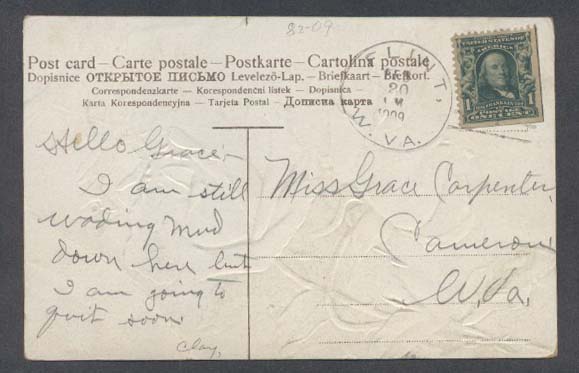 82-09
Post card – Carte postale – Postkarte – Cartolina postale
Dopisnice ОТКРЫТОЕ ПИСЬМО Levelező-Lap. – Briefkaart – Brefkort.
Correspondenzkarte – Korespondenční lístek – Dopisnica
Karta Korespondencyjna – Tarjeta Postal – Дописна карта
FLINT,
20
1909
W. VA.
UNITED STATES OF
AMERICA
FRANKLIN
POSTAGE
1 ONE CENT 1
Hello Grace –
I am still
wading mud
down here but
I am going to
quit soon.
Clay,
Miss Grace Carpenter,
Cameron
W. Va.